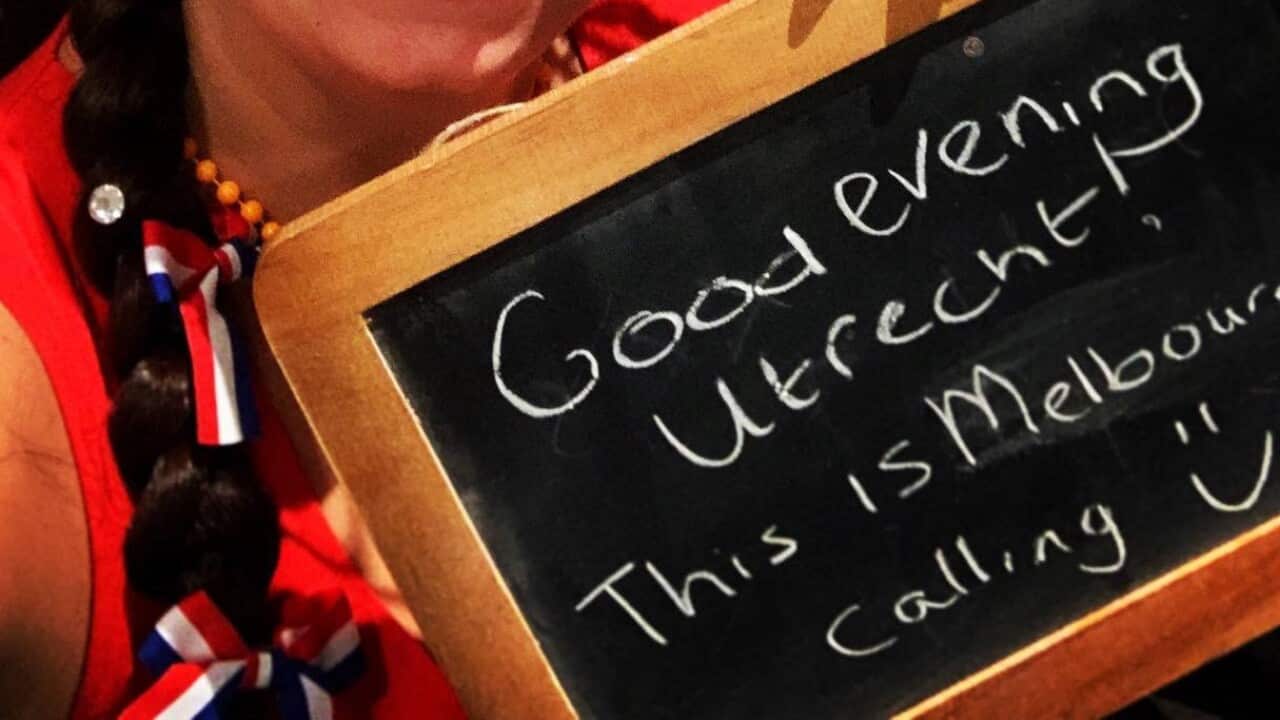 Good evening
Utrecht!
This is Melbour
calling